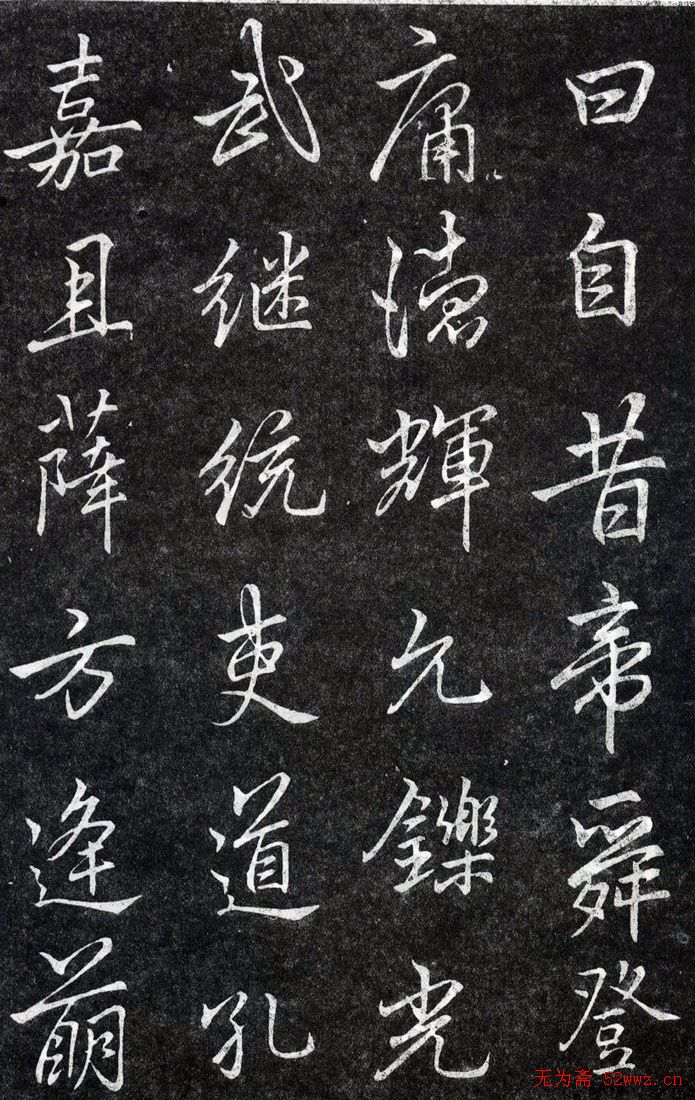 曰自昔帝舜登
庸德輝允鑠光
武继统吏道孔
嘉且薛方逢萌
无为斋 52wwz.cn